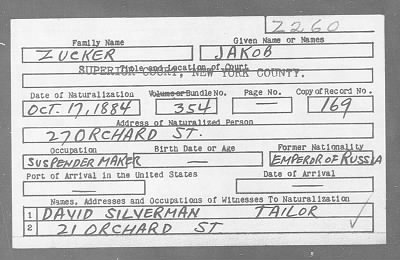 Z260
Family Name Given Name or Names
ZUCKER JAKOB
Title and Location of Court
SUPERIOR COURT, NEW YORK COUNTY.
Date of Naturalization Volume or Bundle No. Page No. Copy of Record No.
OCT. 17, 1884 354 — 169
Address of Naturalized Person
27 ORCHARD ST.
Occupation Birth Date or Age Former Nationality
SUSPENDER MAKER — EMPEROR OF RUSSIA
Port of Arrival in the United States Date of Arrival
— —
Names, Addresses and Occupations of Witnesses To Naturalization
1 DAVID SILVERMAN TAILOR
2 21 ORCHARD ST